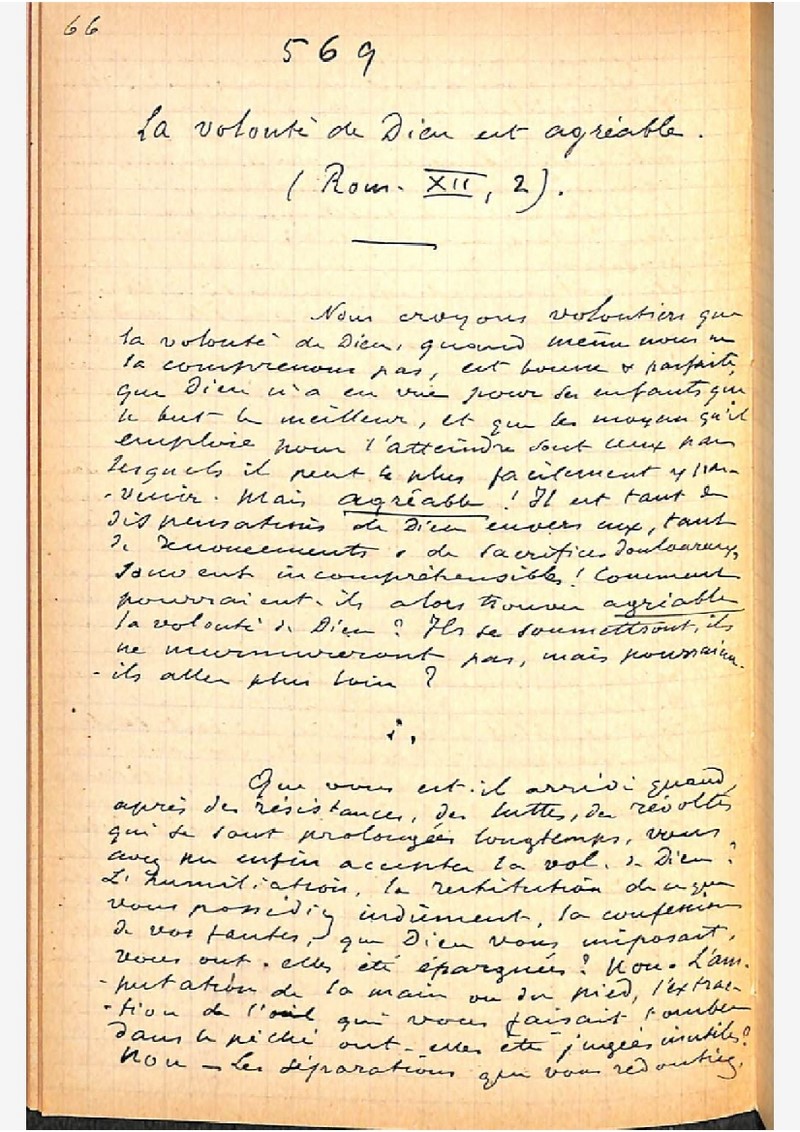 66
569
La volonté de Dieu est agréable.
(Rom. XII, 2).
Nous croyons volontiers que
la volonté de Dieu, quand même nous ne
la comprenons pas, est bonne & parfaite,
que Dieu n'a en vue pour ses enfants que
le but le meilleur, et que les moyens qu'il
emploie pour l'atteindre sont ceux par
lesquels il peut le plus facilement y par-
-venir. Mais agréable ! Il est tant de
dispensations de Dieu envers eux, tant
de renoncements & de sacrifices douloureux,
souvent incompréhensibles ! Comment
pourraient-ils alors trouver agréable
la volonté de Dieu ? Ils se soumettront, ils
ne murmureront pas, mais pourraient-
-ils aller plus loin ?
Que vous est-il arrivé quand,
après des résistances, des luttes, des révoltes
qui se sont prolongées longtemps, vous
avez pu enfin accepter la vol. de Dieu ?
L'humiliation, la restitution de ce que
vous possédiez indûment, la confession
de vos fautes, que Dieu vous imposait,
vous ont-elles été épargnées ? Non. L'am-
-putation de la main ou du pied, l'extrac-
-tion de l'œil qui vous faisait tomber
dans le péché ont-elles été jugées inutiles ?
Non – Les séparations que vous redoutiez,